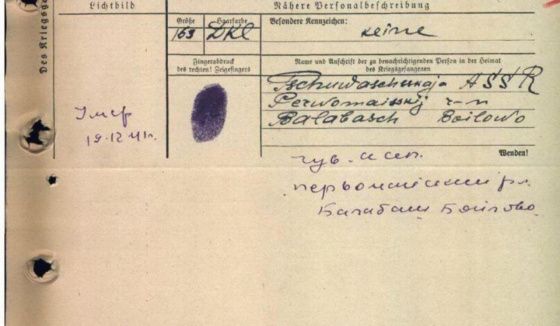 Des Kriegsge
Lichtbild
Nähere Personalbeschreibung
Größe
Haarfarbe
Besondere Kennzeichen:
163
DKL
keine
Fingerabdruck
des rechten! Zeigefingers
Name und Anschrift der zu benachrichtigenden Person in der Heimat
des Kriegsgefangenen
Tschuwaschskaja ASSR
Perwomaisskij r-n
Balabasch Boilowo
Умер
19.12.41г.
Wenden!
чув. ассп.
первомайский р.
Балабаш Бойлово